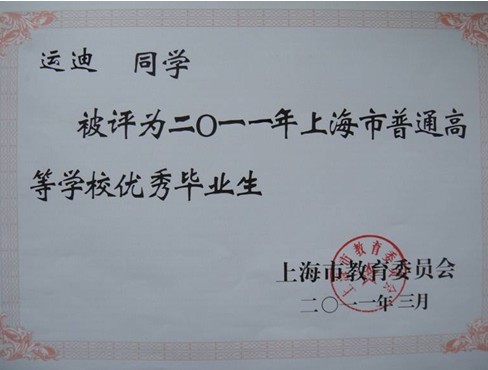 运迪 同学
被评为二〇一一年上海市普通高
等学校优秀毕业生
上海市教育委员会
二〇一一年三月
上海市教育委员会